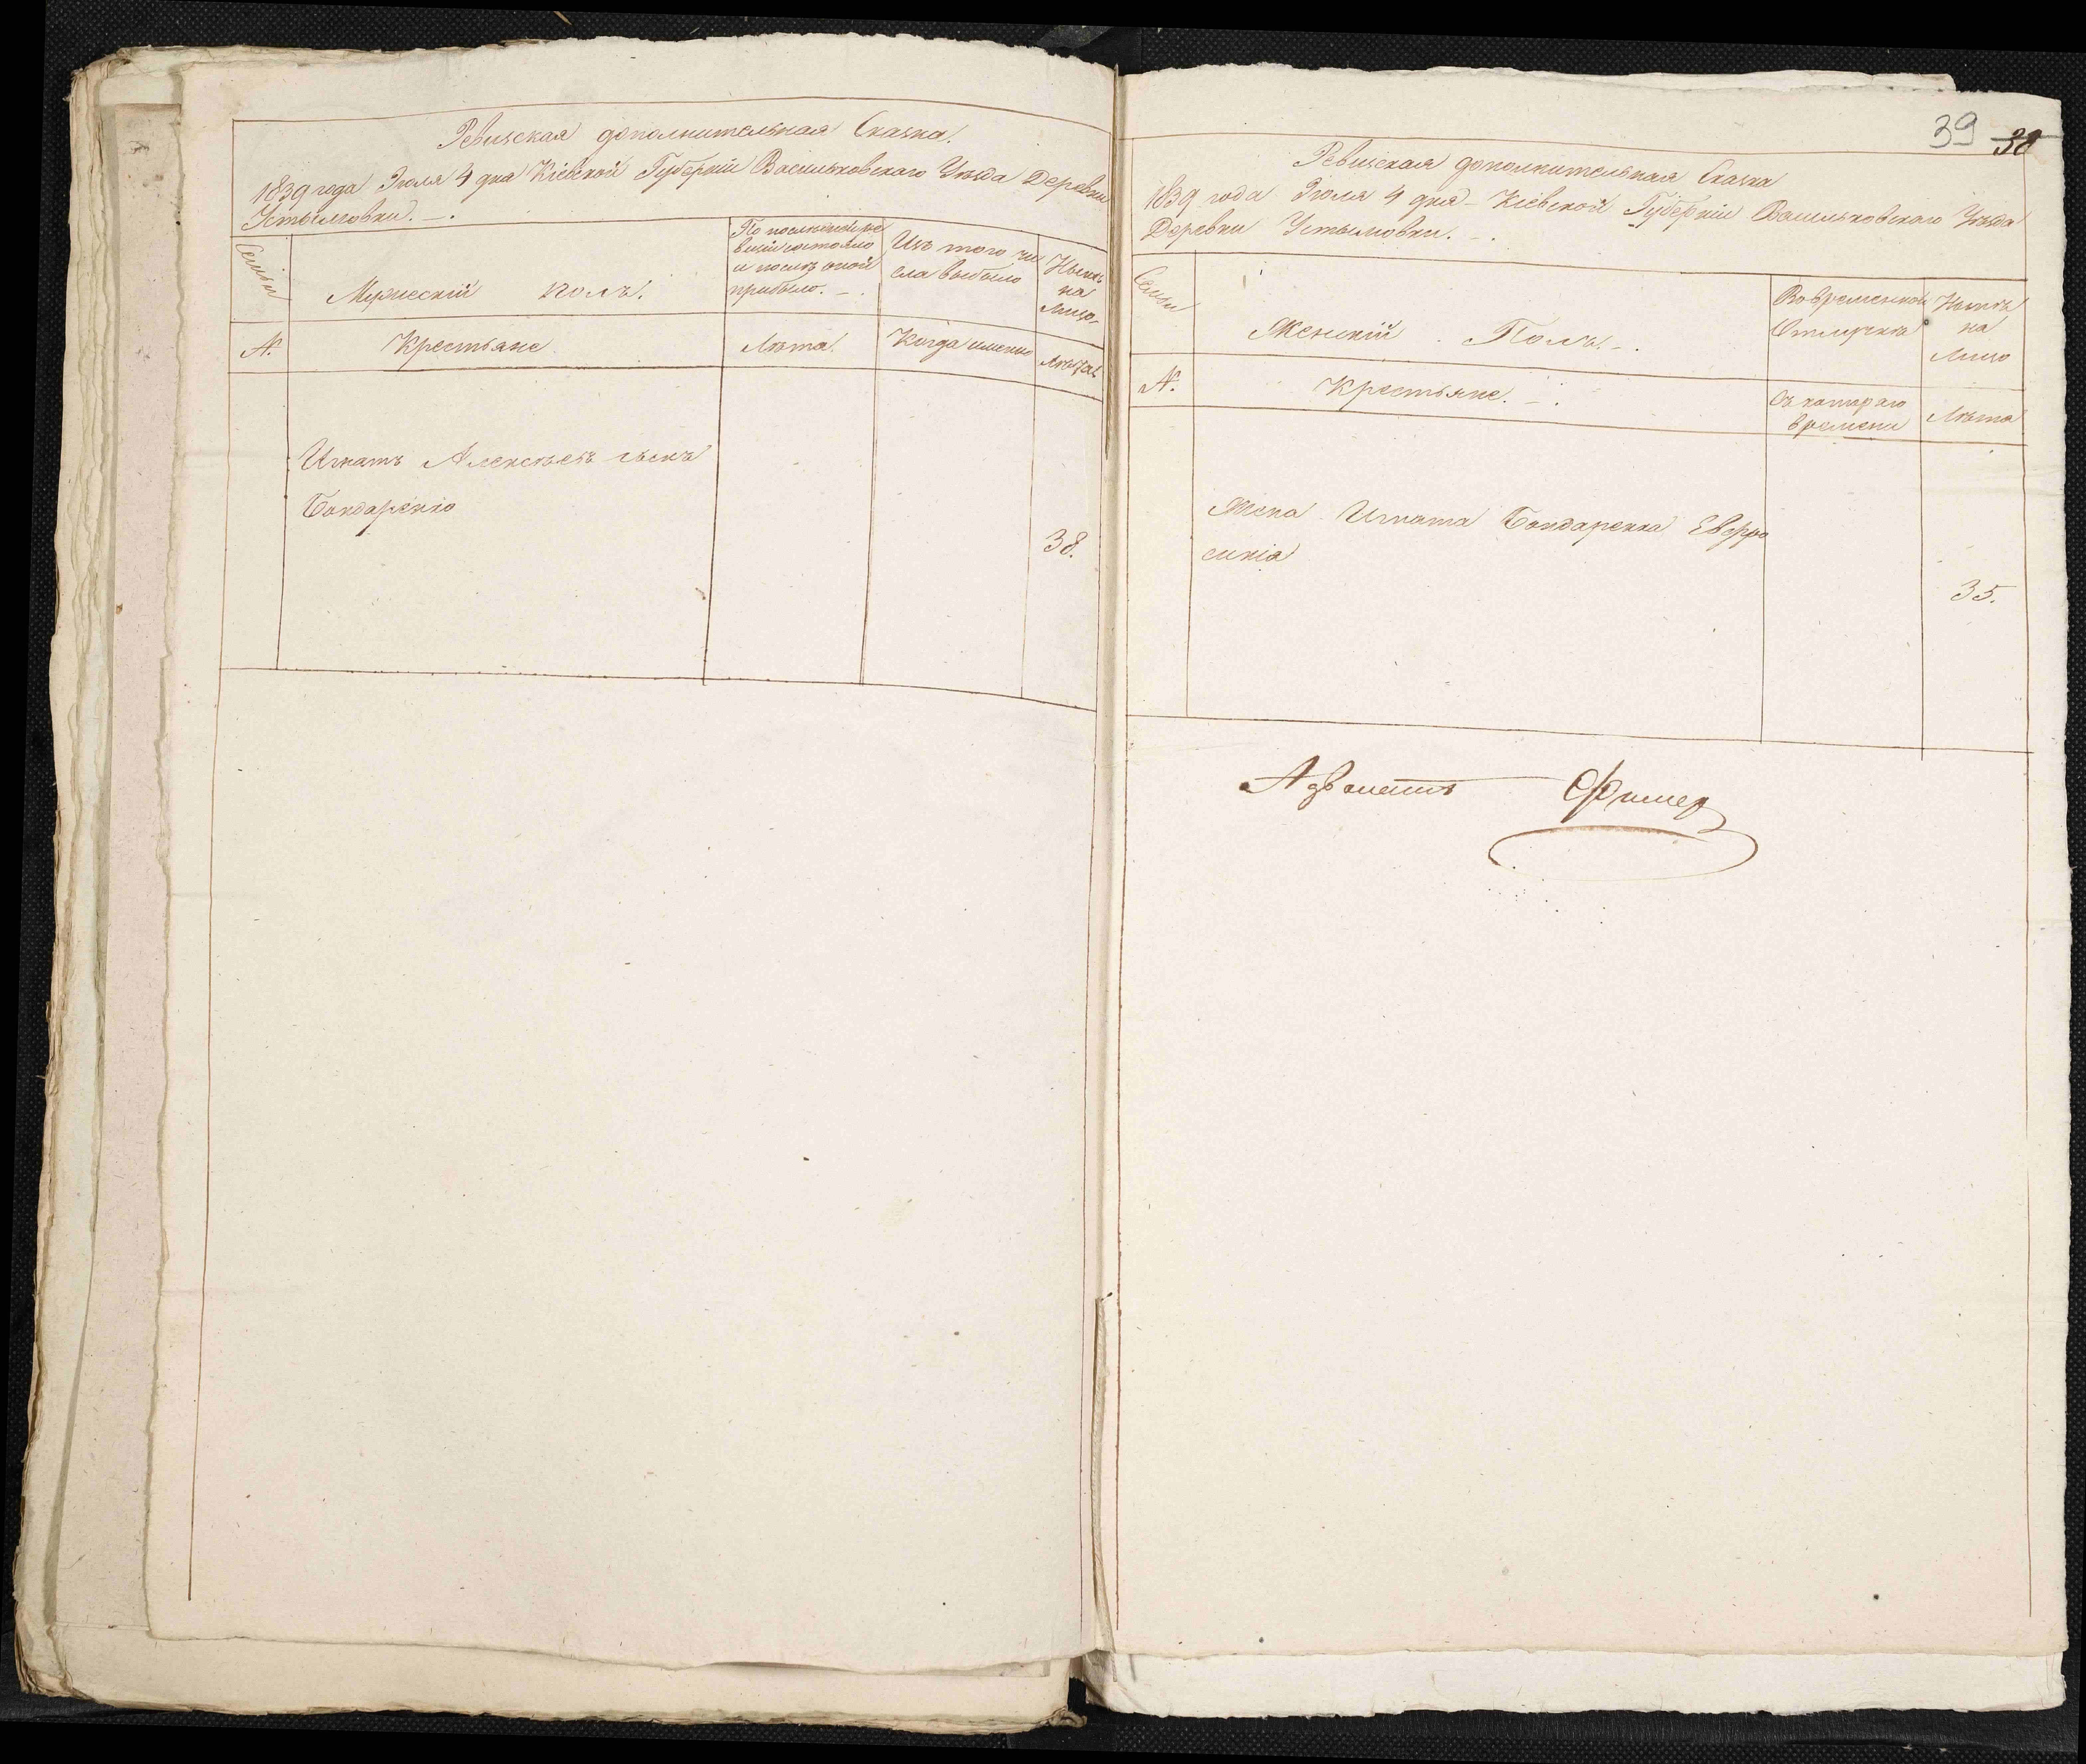 Ревизская дополнительная Сказка.
1839 года Июля 4 дня Кіевской Губерніи Васильковскаго Уѣзда Деревни
Устымовки. —.
Семьи
Мужескій полъ.
По последней ре
визіи состояло
и послѣ оной
прибыло. —.
Изъ того чи
сла выбыло
Нынѣ
на
лицо
№.
Крестьяне
Лѣта.
Когда именно
Лѣта
Игнатъ Алексѣевъ сынъ
Бондаренко
38.
39 38
Ревизская дополнительная Сказка
1839 года Июля 4 дня – Кіевской Губерніи Васильковскаго Уѣзда
Деревни Устымовки. —.
Семьи
Женскій Полъ. —.
Во временной
Отлучкѣ
Нынѣ
на
лицо
№.
Крестьяне. —.
Съ котораго
времени
Лѣта
Жена Игната Бондаренка Евфро
синія
35.